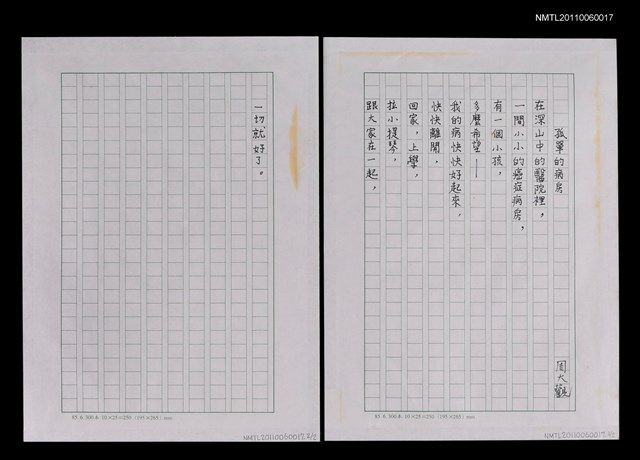 NMTL20110060017
孤單的病房
周大觀
在深山中的醫院裡，
一間小小的癌症病房，
有一個小孩，
多麼希望——
我的病快快好起來，
快快離開，
回家，上學，
拉小提琴，
跟大家在一起，
一切就好了。
NMTL20110060017 2/2